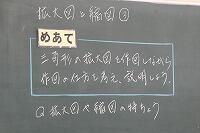 拡大図と縮図②
めあて
三角形の拡大図を作図しながら
作図の仕方を考え、説明しよう。
Q 拡大図や縮図の特ちょう